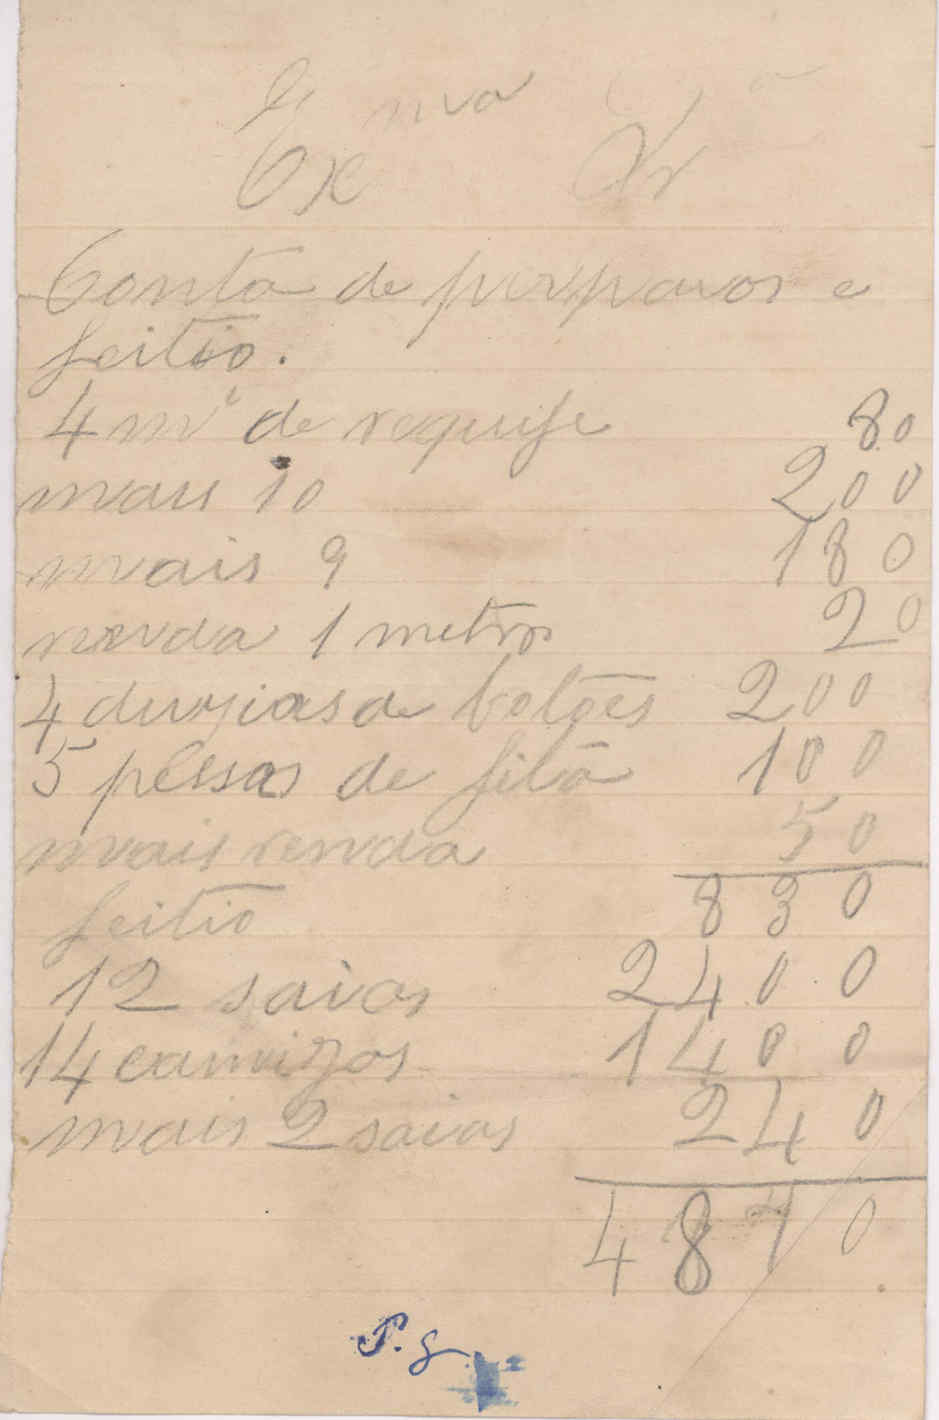 Exma Srª
Conta de perparos e
feitio.
4 mˢ de requife 80
mais 10 200
mais 9 180
renda 1 metro 20
4 duzias de botões 200
5 pessas de fitã 100
mais renda 50
830
feitio
12 saias 2400
14 camizas 1400
mais 2 saias 240
4870
P. g